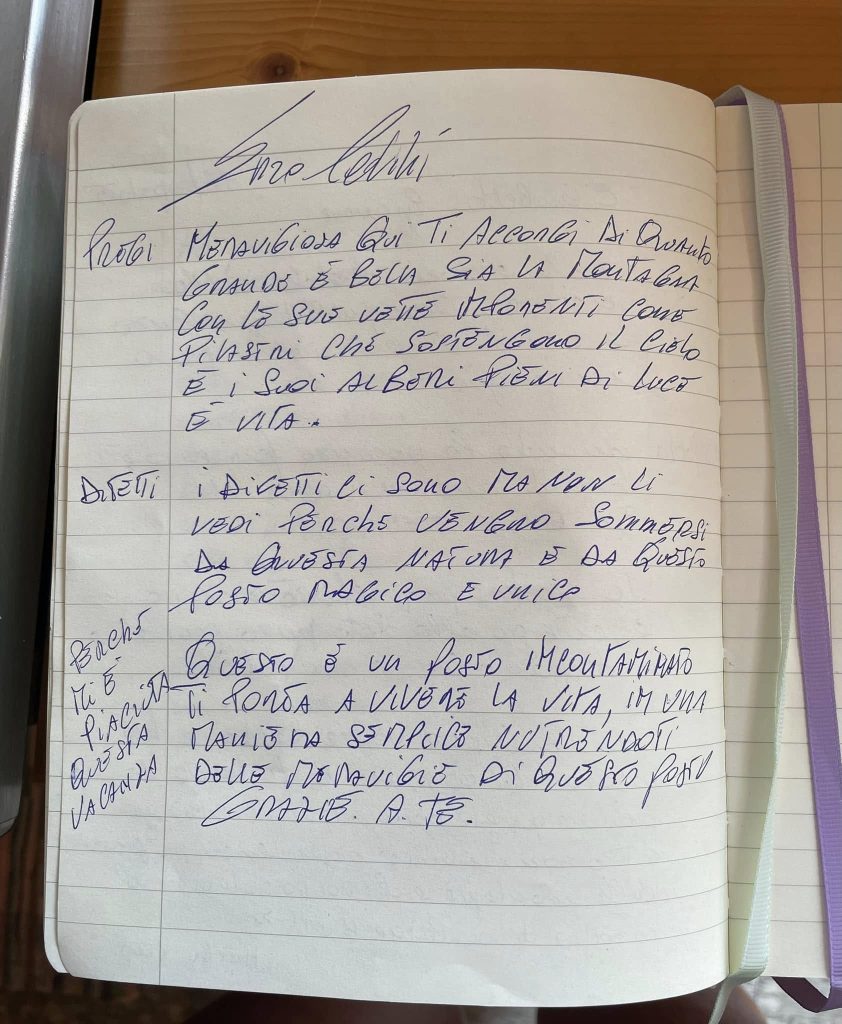 Enzo
PREGI MERAVIGIOSA QUI TI ACCORGI DI QUANTO
GRANDE È BELLA SIA LA MONTAGNA
CON LE SUE VETTE IMPONENTI COME
PILASTRI CHE SOSTENGONO IL CIELO
E I SUOI ALBERI PIENI DI LUCE
E VITA..
DIFETTI I DIFETTI CI SONO MA NON LI
VEDI PERCHE VENGNO SOMMERSI
DA QUESTA NATURA E DA QUESTO
POSTO MAGICO E UNICO
PERCHE
MI È
PIACIUTA
QUESTA
VACANZA
QUESTO È UN POSTO INCONTAMINATO
TI PORTA A VIVERE LA VITA, IN UNA
MANIERA SEMPLICE NUTRENDOTI
DELLE MERAVIGIE DI QUESTO POSTO
GRAZIE. A. TE.